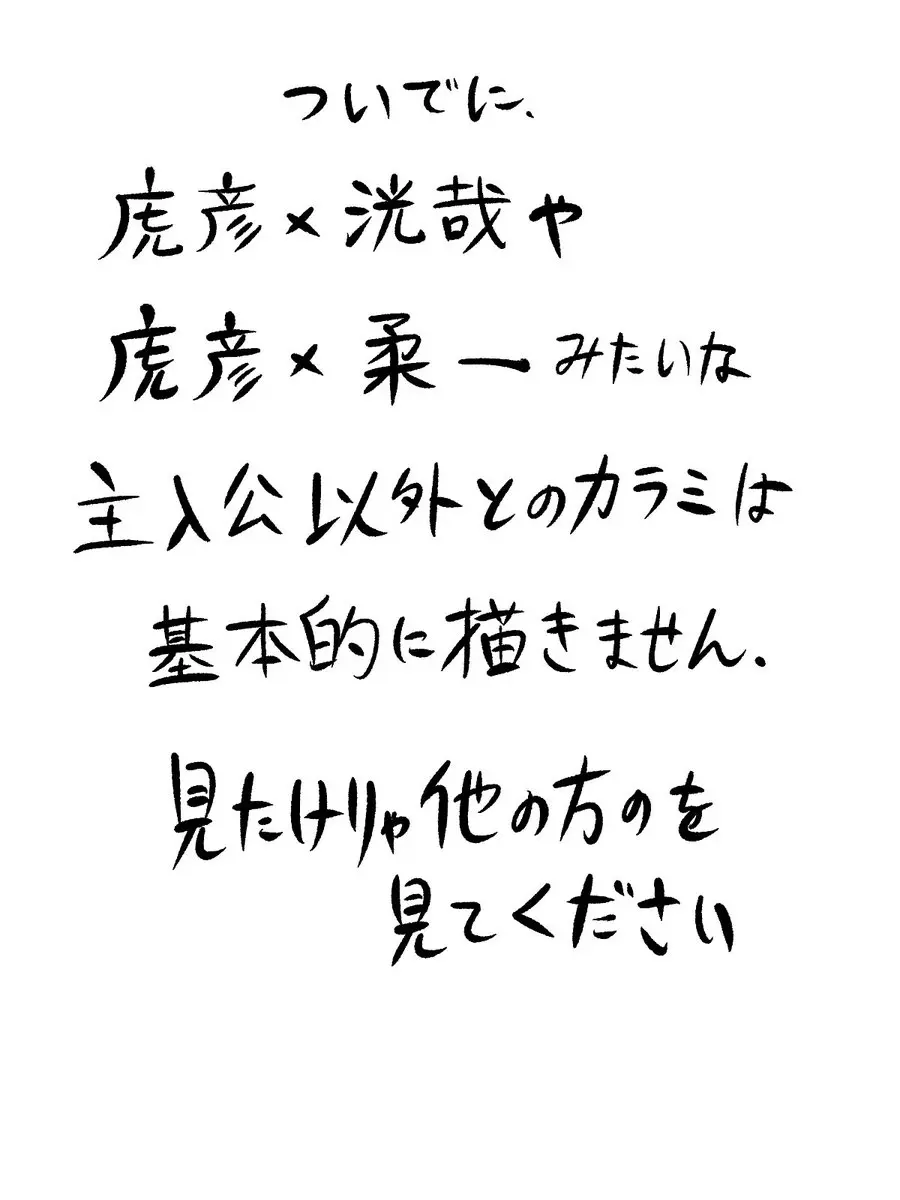 ついでに、
虎彦×洸哉や
虎彦×柔一みたいな
主人公以外とのカラミは
基本的に描きません.
見たけりゃ他の方のを
見てください